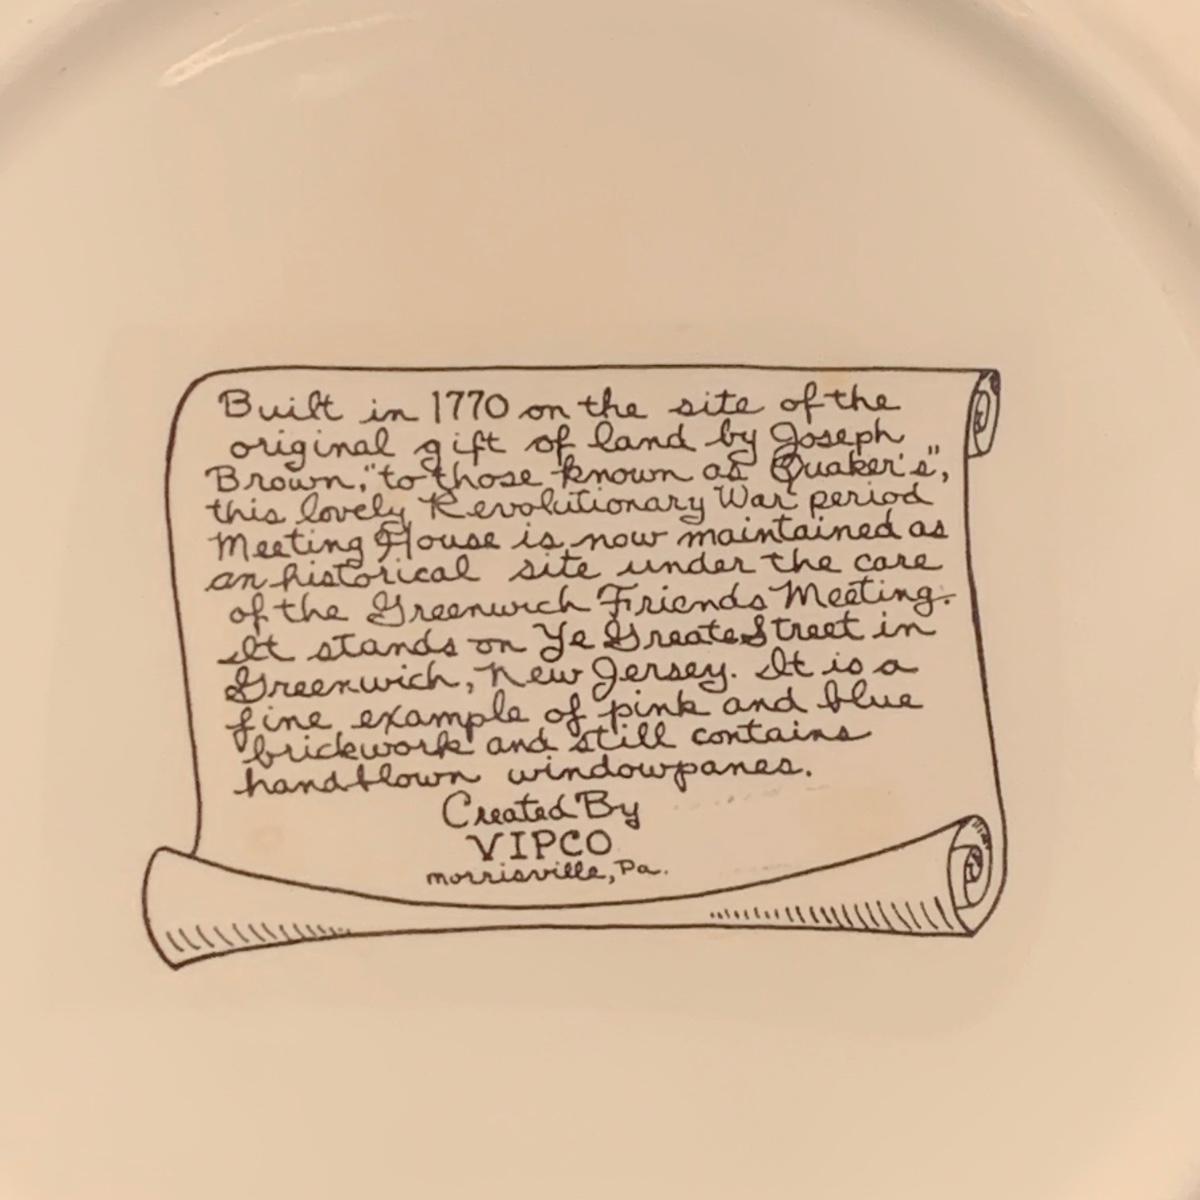 Built in 1770 on the site of the
original gift of land by Joseph
Brown, "to those known as Quaker's",
this lovely Revolutionary War period
Meeting House is now maintained as
an historical site under the care
of the Greenwich Friends Meeting.
It stands on Ye Greate Street in
Greenwich, New Jersey. It is a
fine example of pink and blue
brickwork and still contains
handblown windowpanes.
Created By
VIPCO
Morrisville, Pa.